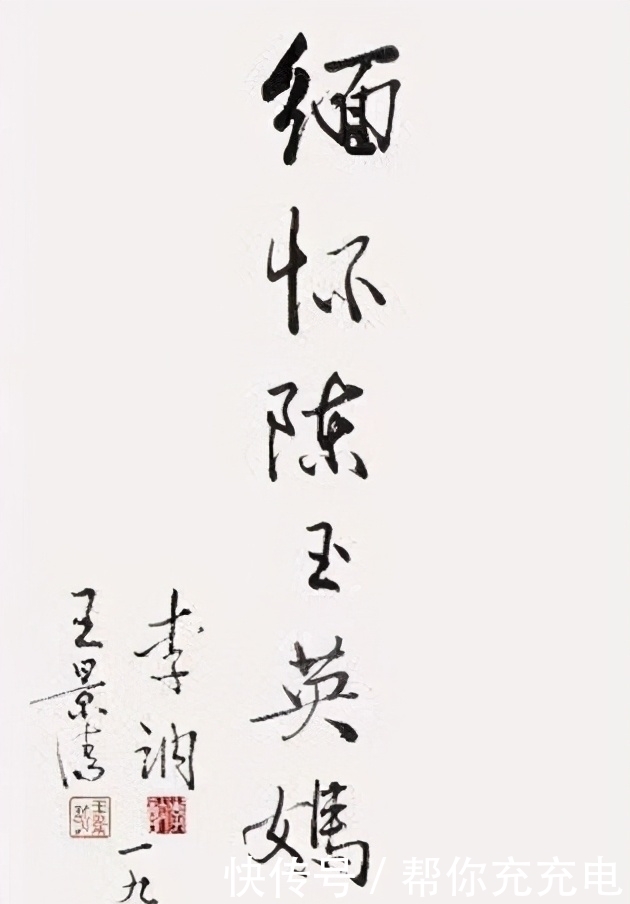 缅怀陈玉英妈
李讷
王景清
一九
快传号/帮你充充电